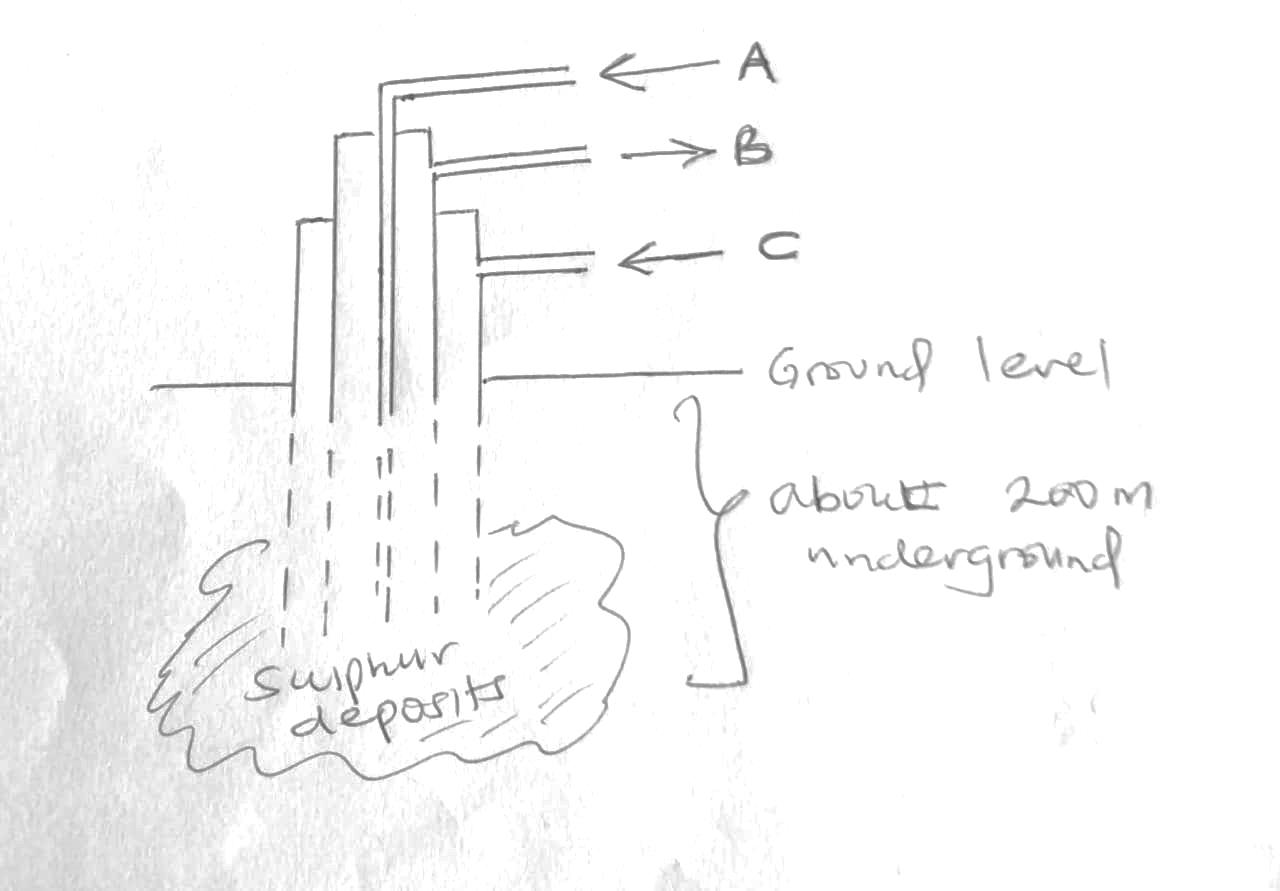 A
B
C
Ground level
about 200m
underground
Sulphur
deposits